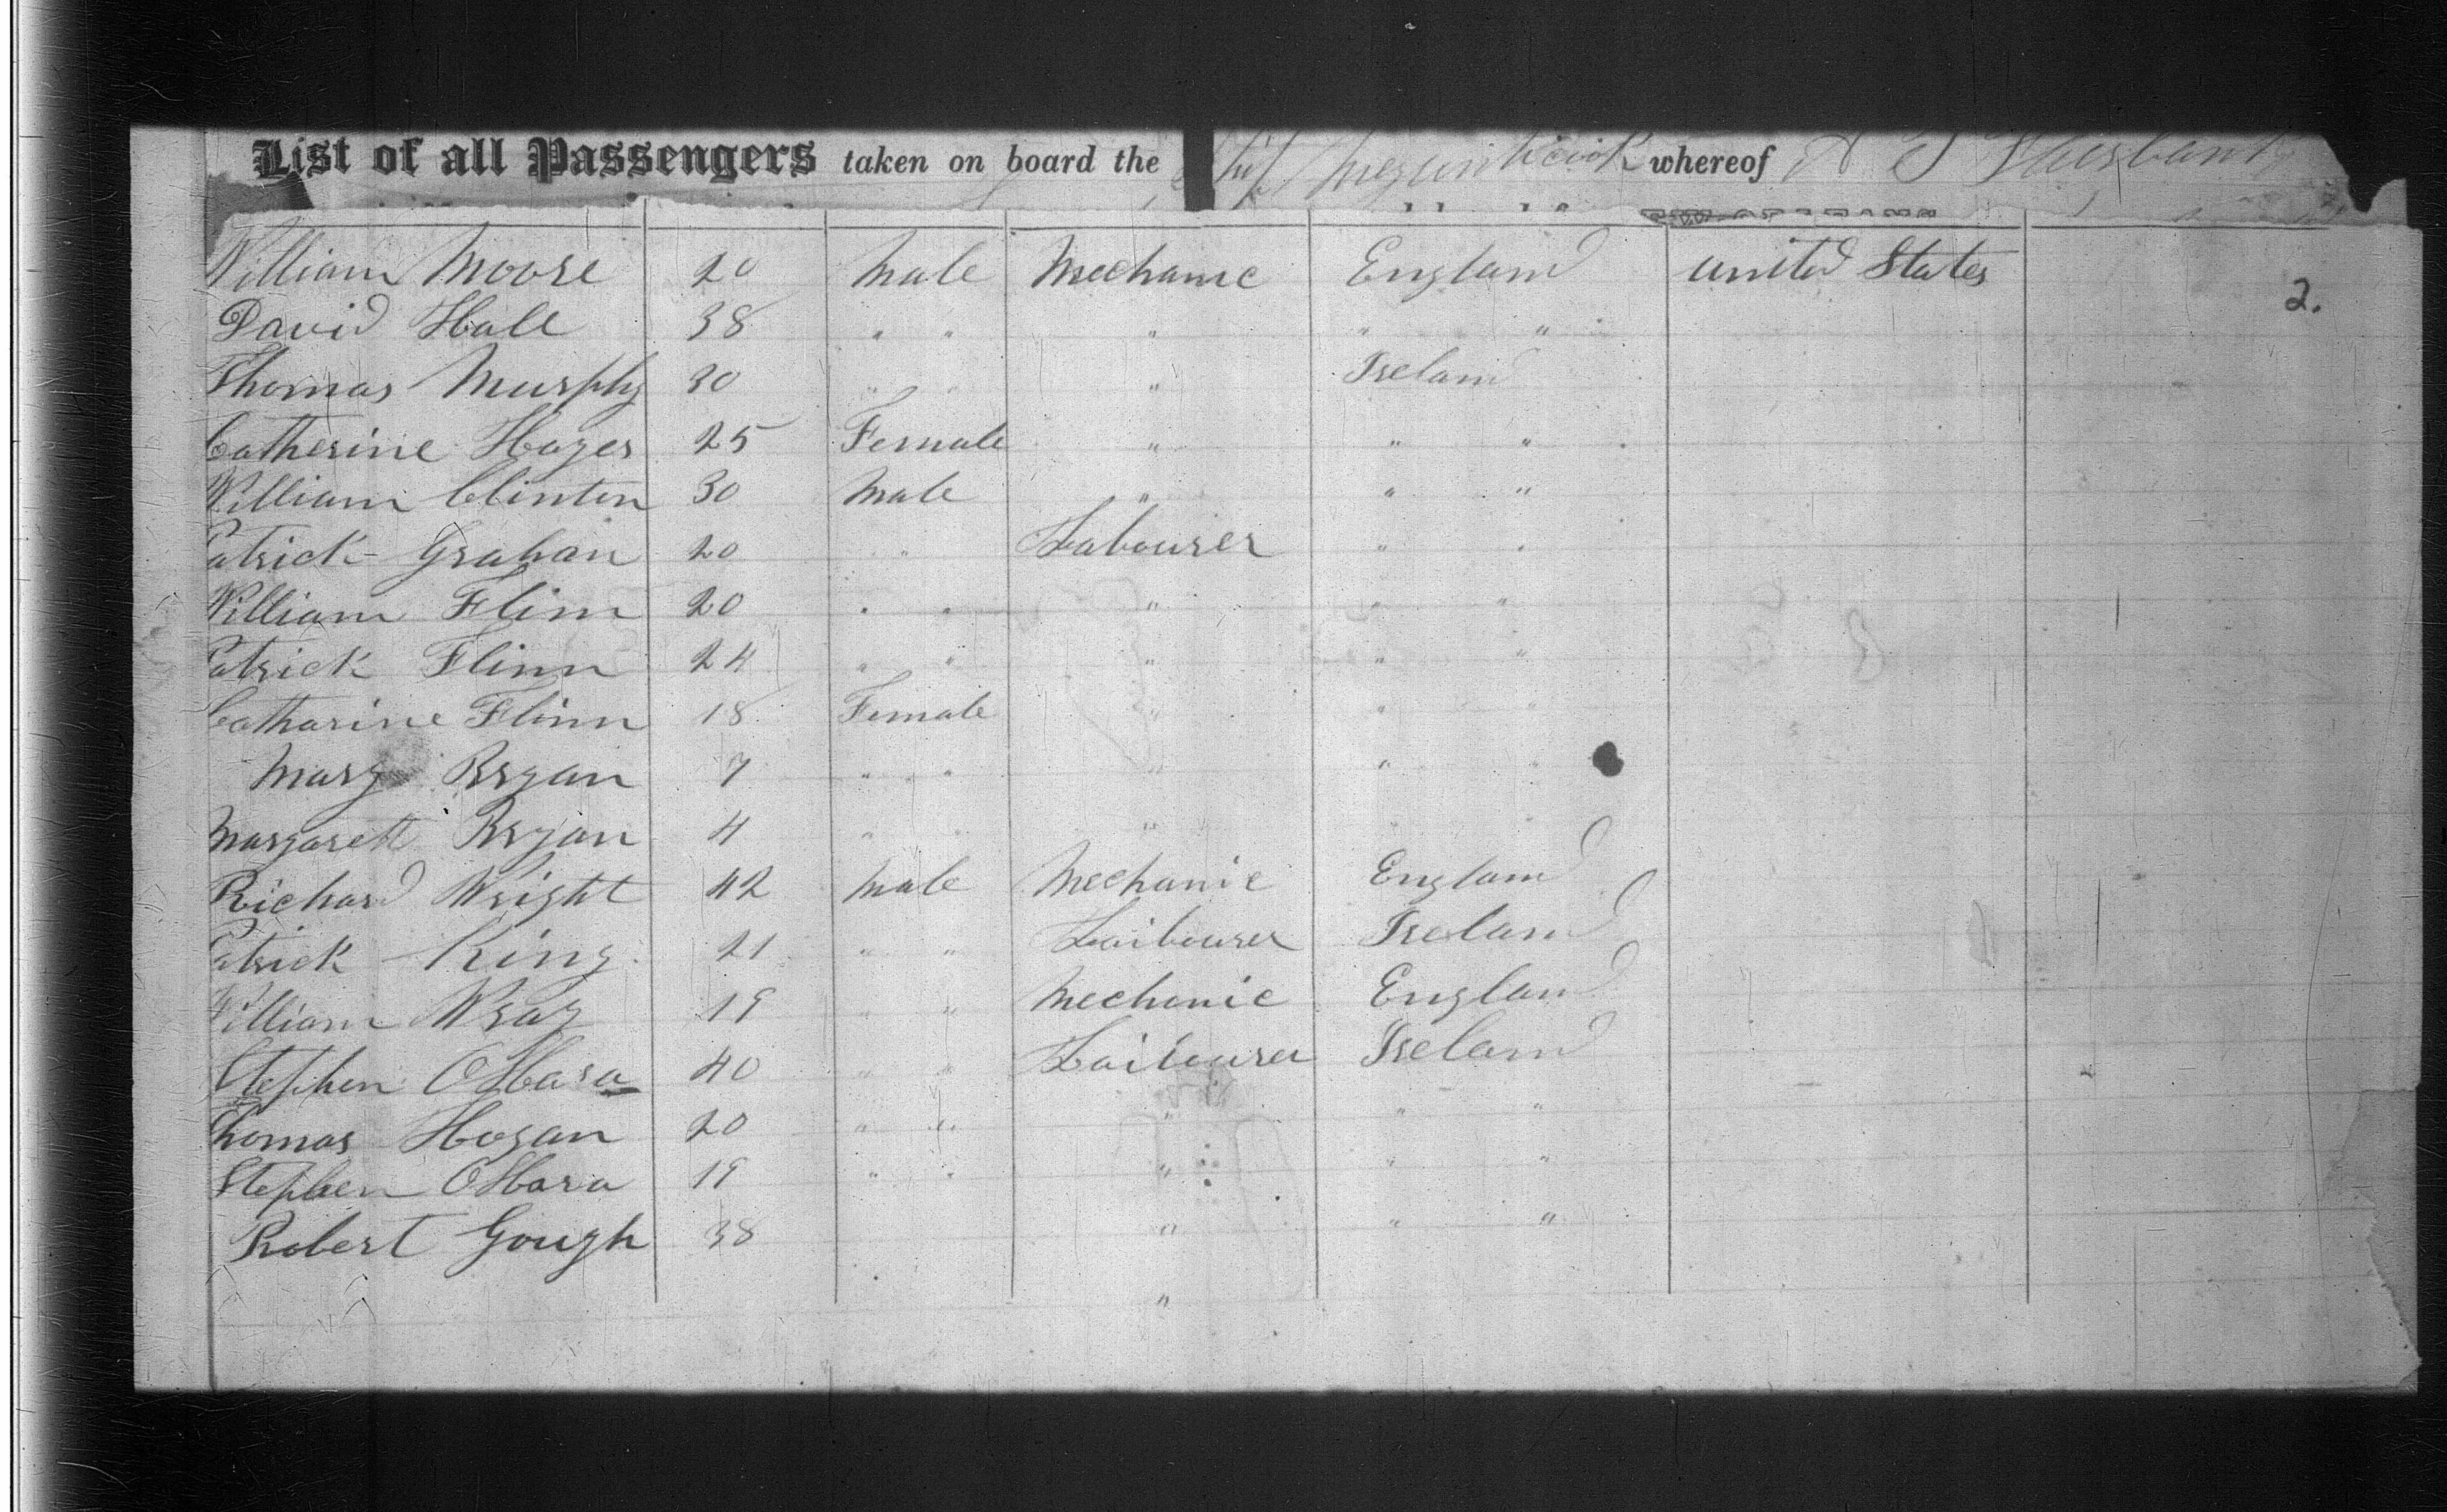 List of all Passengers taken on board the Ship Megunticook whereof
William Moore 20 Male Mechanic England United States
2.
David Hall 38 " " " " "
Thomas Murphy 30 " " " Ireland
Catherine Hayes 25 Female " " "
William Clinton 30 Male " " "
Patrick Grahan 20 " " Labourer " "
William Flinn 20 " " " " "
Patrick Flinn 24 " " " " "
Catharine Flinn 18 Female " " "
Mary Bryan 7 " " " " "
Margarett Bryan 4 " " " " "
Richard Wright 42 Male Mechanic England
Patrick King 21 " " Laibourer Ireland
William Wray 19 " " Mechanic England
Stephen OHara 40 " " Laibourer Ireland
Thomas Hogan 20 " " " " "
Stephen OHara 19 " " " " "
Robert Gough 38 " " "
"